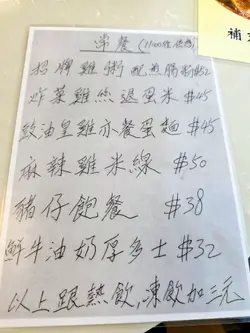 常餐 (11:00後供應)
招牌雞粥配煎腸粉$52
炸菜雞絲退蛋米 $45
豉油皇雞亦餐蛋麵 $45
麻辣雞米線 $50
豬仔飽餐 $38
鮮牛油奶厚多士 $32
以上跟熱飲,凍飲加三元
補